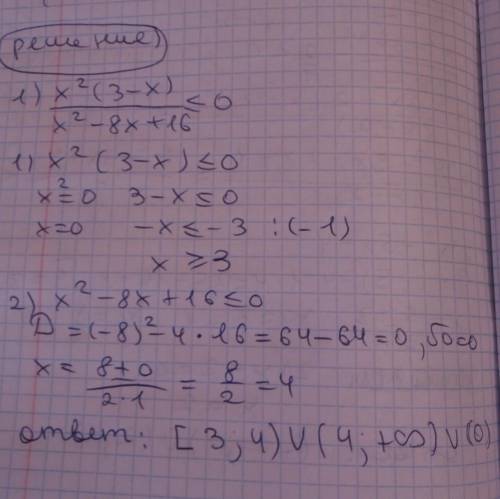 решение)
1) x²(3-x) / x²-8x+16 ≤ 0
1) x²(3-x) ≤ 0
x²=0 3-x ≤ 0
x=0 -x ≤ -3 :(-1)
x ≥ 3
2) x²-8x+16 ≤ 0
D = (-8)²-4·16 = 64-64 = 0, √0=0
x = 8±0 / 2·1 = 8/2 = 4
ответ: [3;4) ∪ (4;+∞) ∪ (0)